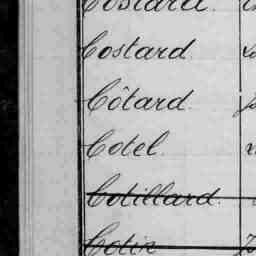 Costard
Costard
Côtard
Cotel
Cotillard
Cotin